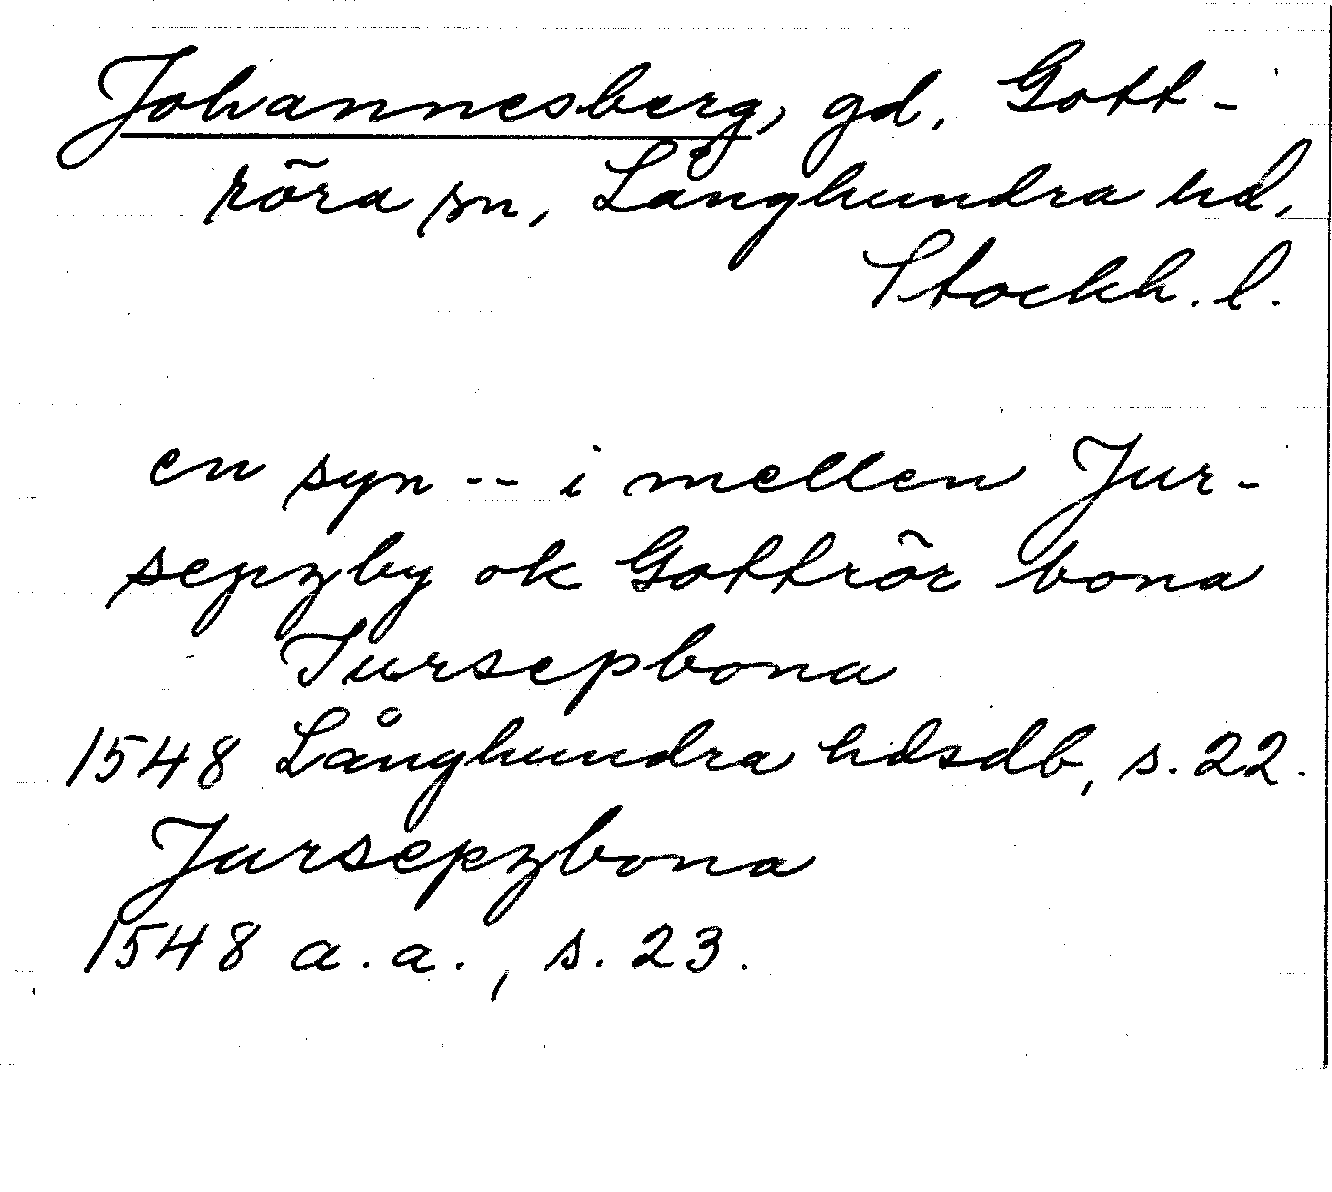 Johannesberg, gd, Gott-
röra sn, Långhundra hd,
Stockh. l.
en syn -- i mellen Jur-
sepzby ok Gottrör bona
Jursepbona
1548 Långhundra hdsdb, s. 22.
Jursepzbona
1548 a. a., s. 23.